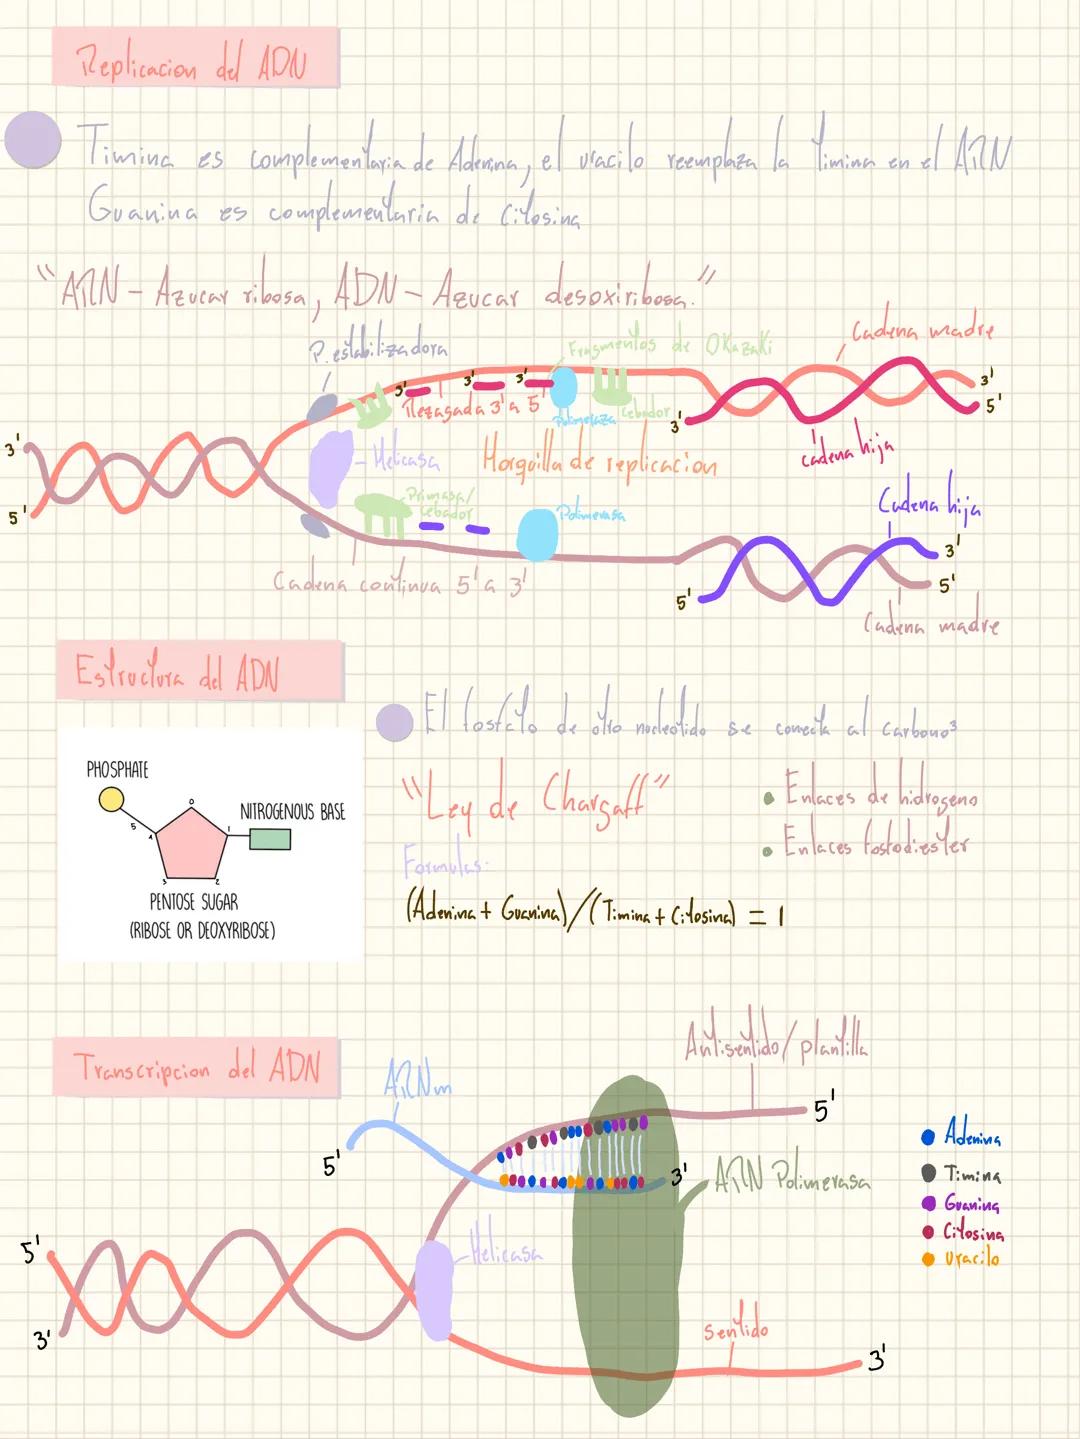 Replicacion del ADN
Timina es complementaria de Adenina, el uracilo reemplaza la timina en el ARN
Guanina es complementaria de Citosina
"ARN - Azucar ribosa, ADN - Azucar desoxiribosa."
Cadena madre
P. estabilizadora
Fragmentos de OKazaKi
3'
3'
3'
3'
5'
Rezagada 3' a 5'
Polimeraza
Cebador
3'
cadena hija
3'
Helicasa
Horquilla de replicacion
Primasa/
Cebador
Polimerasa
Cadena hija
5'
3'
Cadena continua 5' a 3'
5'
5'
Cadena madre
Estructura del ADN
El fosfato de otro nucleotido se conecta al carbono³
PHOSPHATE
"Ley de Chargaff"
• Enlaces de hidrogeno
O
NITROGENOUS BASE
5
4
1
• Enlaces fosfodiester
Formulas:
3
2
PENTOSE SUGAR
(RIBOSE OR DEOXYRIBOSE)
(Adenina + Guanina)/(Timina + Citosina) = 1
Transcripcion del ADN
Antisentido/plantilla
ARNm
5'
Adenina
5'
3'
ARN Polimerasa
Timina
Guanina
Citosina
Uracilo
5'
Helicasa
3'
sentido
3'